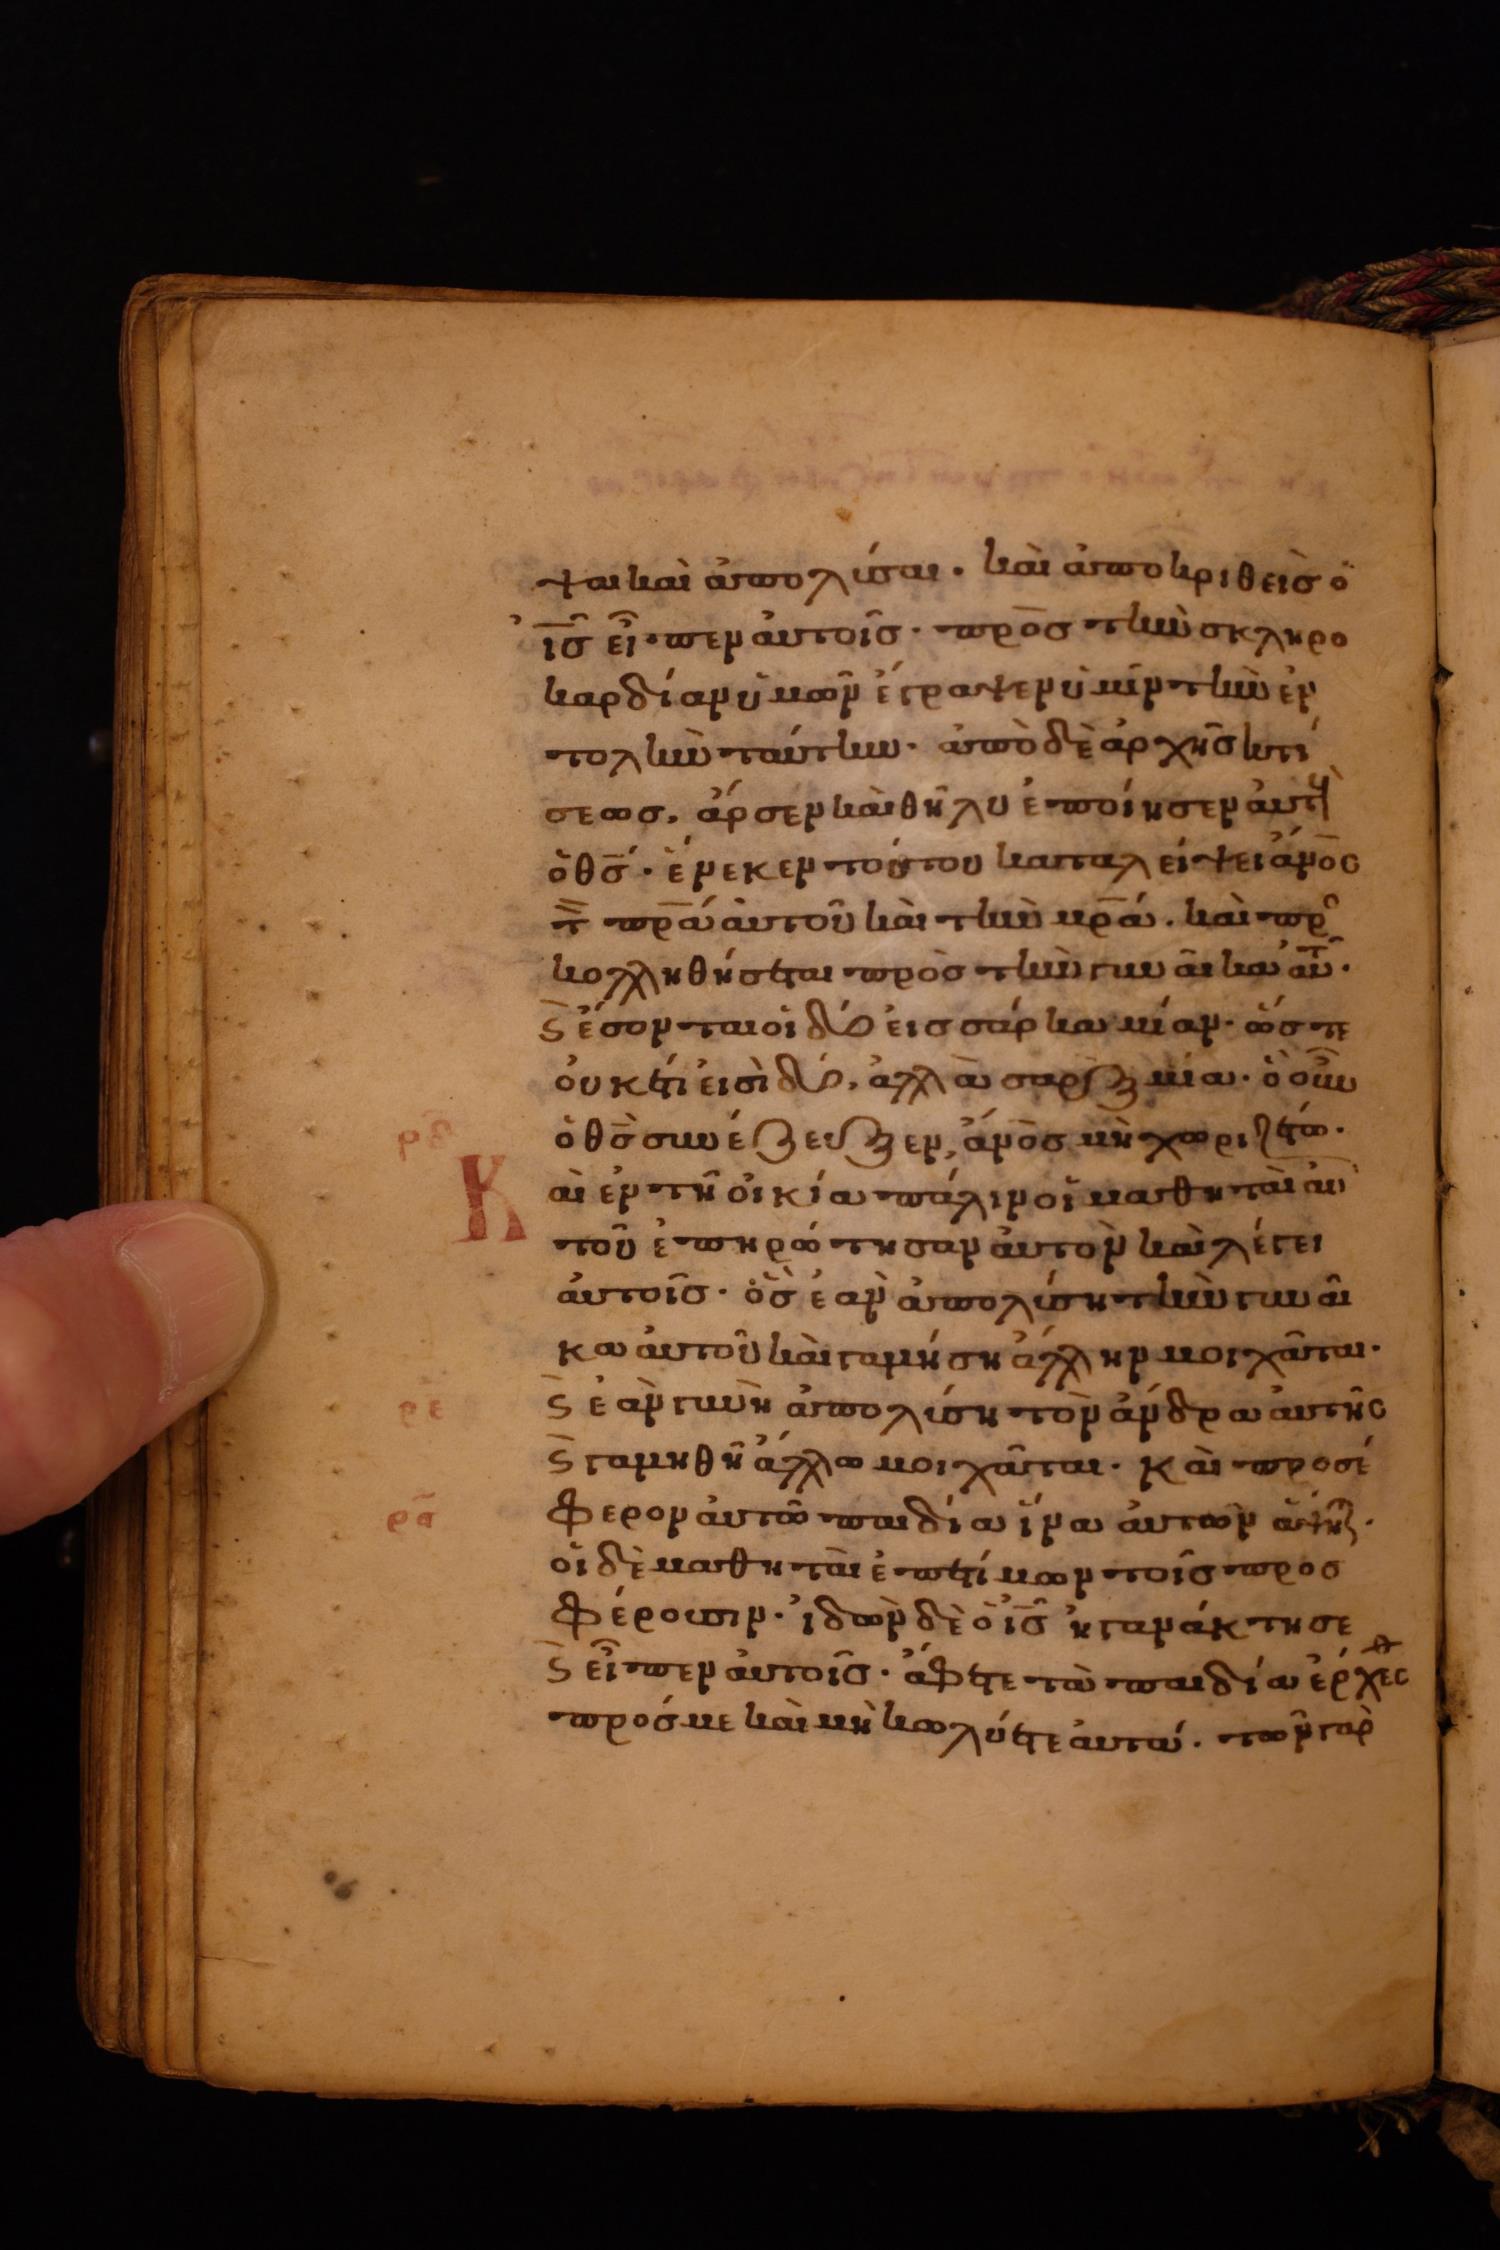 ψαι καὶ ἀπολύσαι. καὶ ἀποκριθεὶσ ὁ
ἰ̅σ̅ εἶπεν αὐτοῖσ· πρὸσ τὴν σκληρο
καρδίαν ὑμῶν ἔγραψεν ὑμῖν τὴν ἐν
τολὴν ταύτην· ἀπὸ δὲ ἀρχῆσ κτί
σεωσ, ἄρσεν καὶ θῆλυ ἐποίησεν αὐτ
ὁ θ̅σ̅· ἕνεκεν τούτου καταλείψει ἄνο̅ς
τ π̅ρ̅α̅ αὐτοῦ καὶ τὴν μ̅ρ̅α̅. καὶ πρ
κολληθήσεται πρὸσ τὴν γυναῖκα αὐτ·
ϛ ἔσονται οἱ δύο εἰσ σάρκα μίαν· ὥστε
οὐκέτι εἰσὶ δύο, ἀλλὰ σὰρξ μία· ὃ οὖν
ὁ θ̅σ̅ συνέζευξεν, ἄνο̅σ μὴ χωριζέτω·
ρδ
Καὶ ἐν τῆ οἰκία πάλιν οἱ μαθηταὶ αὐ
τοῦ ἐπηρώτησαν αὐτὸν καὶ λέγει
αὐτοῖσ· ὃσ ἐὰν ἀπολύση τὴν γυναῖ
κα αὐτοῦ καὶ γαμήση ἄλλην μοιχᾶται·
ρε ϛ ἐὰν γυνὴ ἀπολύση τὸν ἄνδρα αὐτῆς
ϛ γαμηθῆ ἄλλω μοιχᾶται· καὶ προσέ
ρϛ φερον αὐτῶ παιδία ἵνα αὐτῶν ἅψητ·
οἱ δὲ μαθηταὶ ἐπετίμων τοῖσ προσ
φέρουσιν· ἰδὼν δὲ ὁ ἰ̅σ̅ ἠγανάκτησε
ϛ εἶπεν αὐτοῖσ· ἄφετε τὰ παιδία ἔρχεσθ
πρόσ με καὶ μὴ κωλύετε αὐτά. τῶν γὰρ